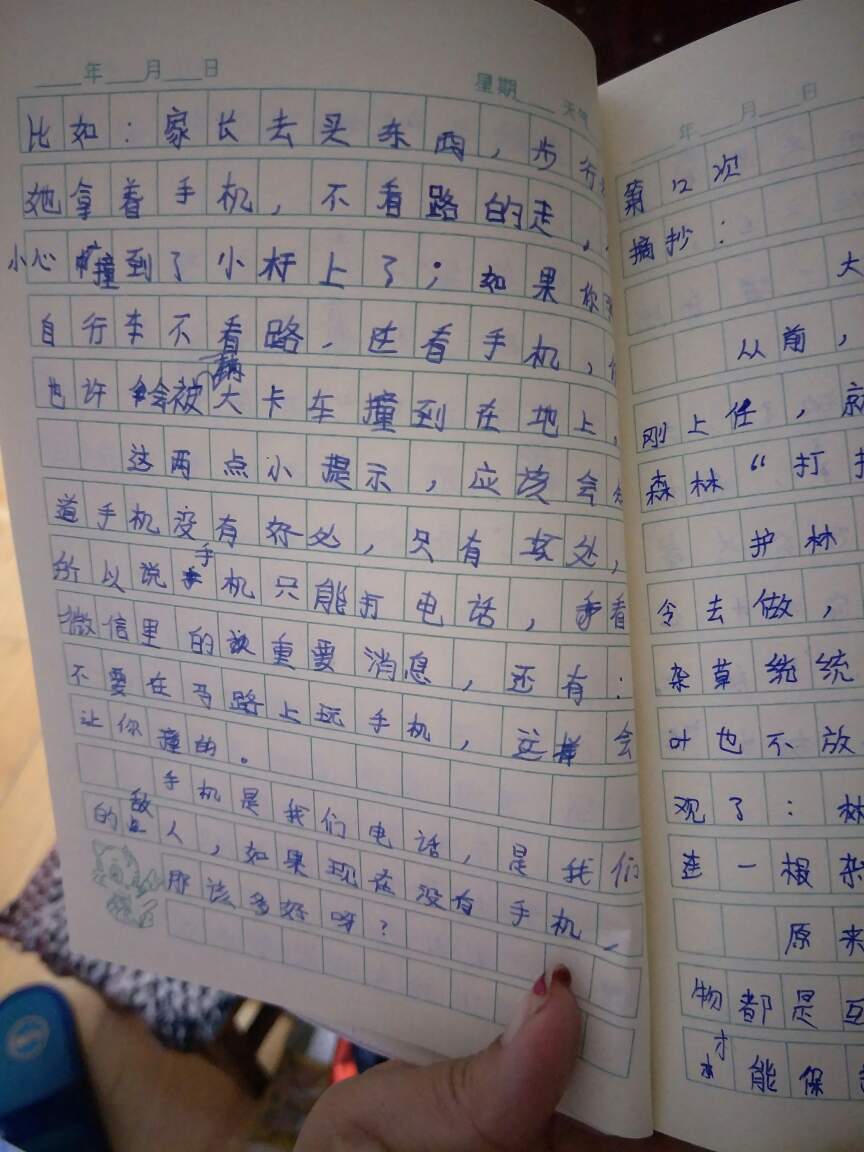 年 月 日 星期 天气
比如：家长去买东西，步行
她拿着手机，不看路的走，
小心撞到了小杆上了；如果你
自行车不看路，还看手机，
也许会被大卡车撞到在地上，
这两点小提示，应该会知
道手机没有好处，只有坏处，
所以说手机只能打电话，看
微信里的重要消息，还有：
不要在马路上玩手机，这样会
让你撞的。
手机是我们电话，是我们
的敌人，如果现在没有手机，
那该多好呀？
年 月 日
第12次
摘抄：
大
从前，
刚上任，就
森林“打扫
护林
令去做，
杂草统统
叶也不放
观了：林
连一根杂
原来
物都是互
才能保